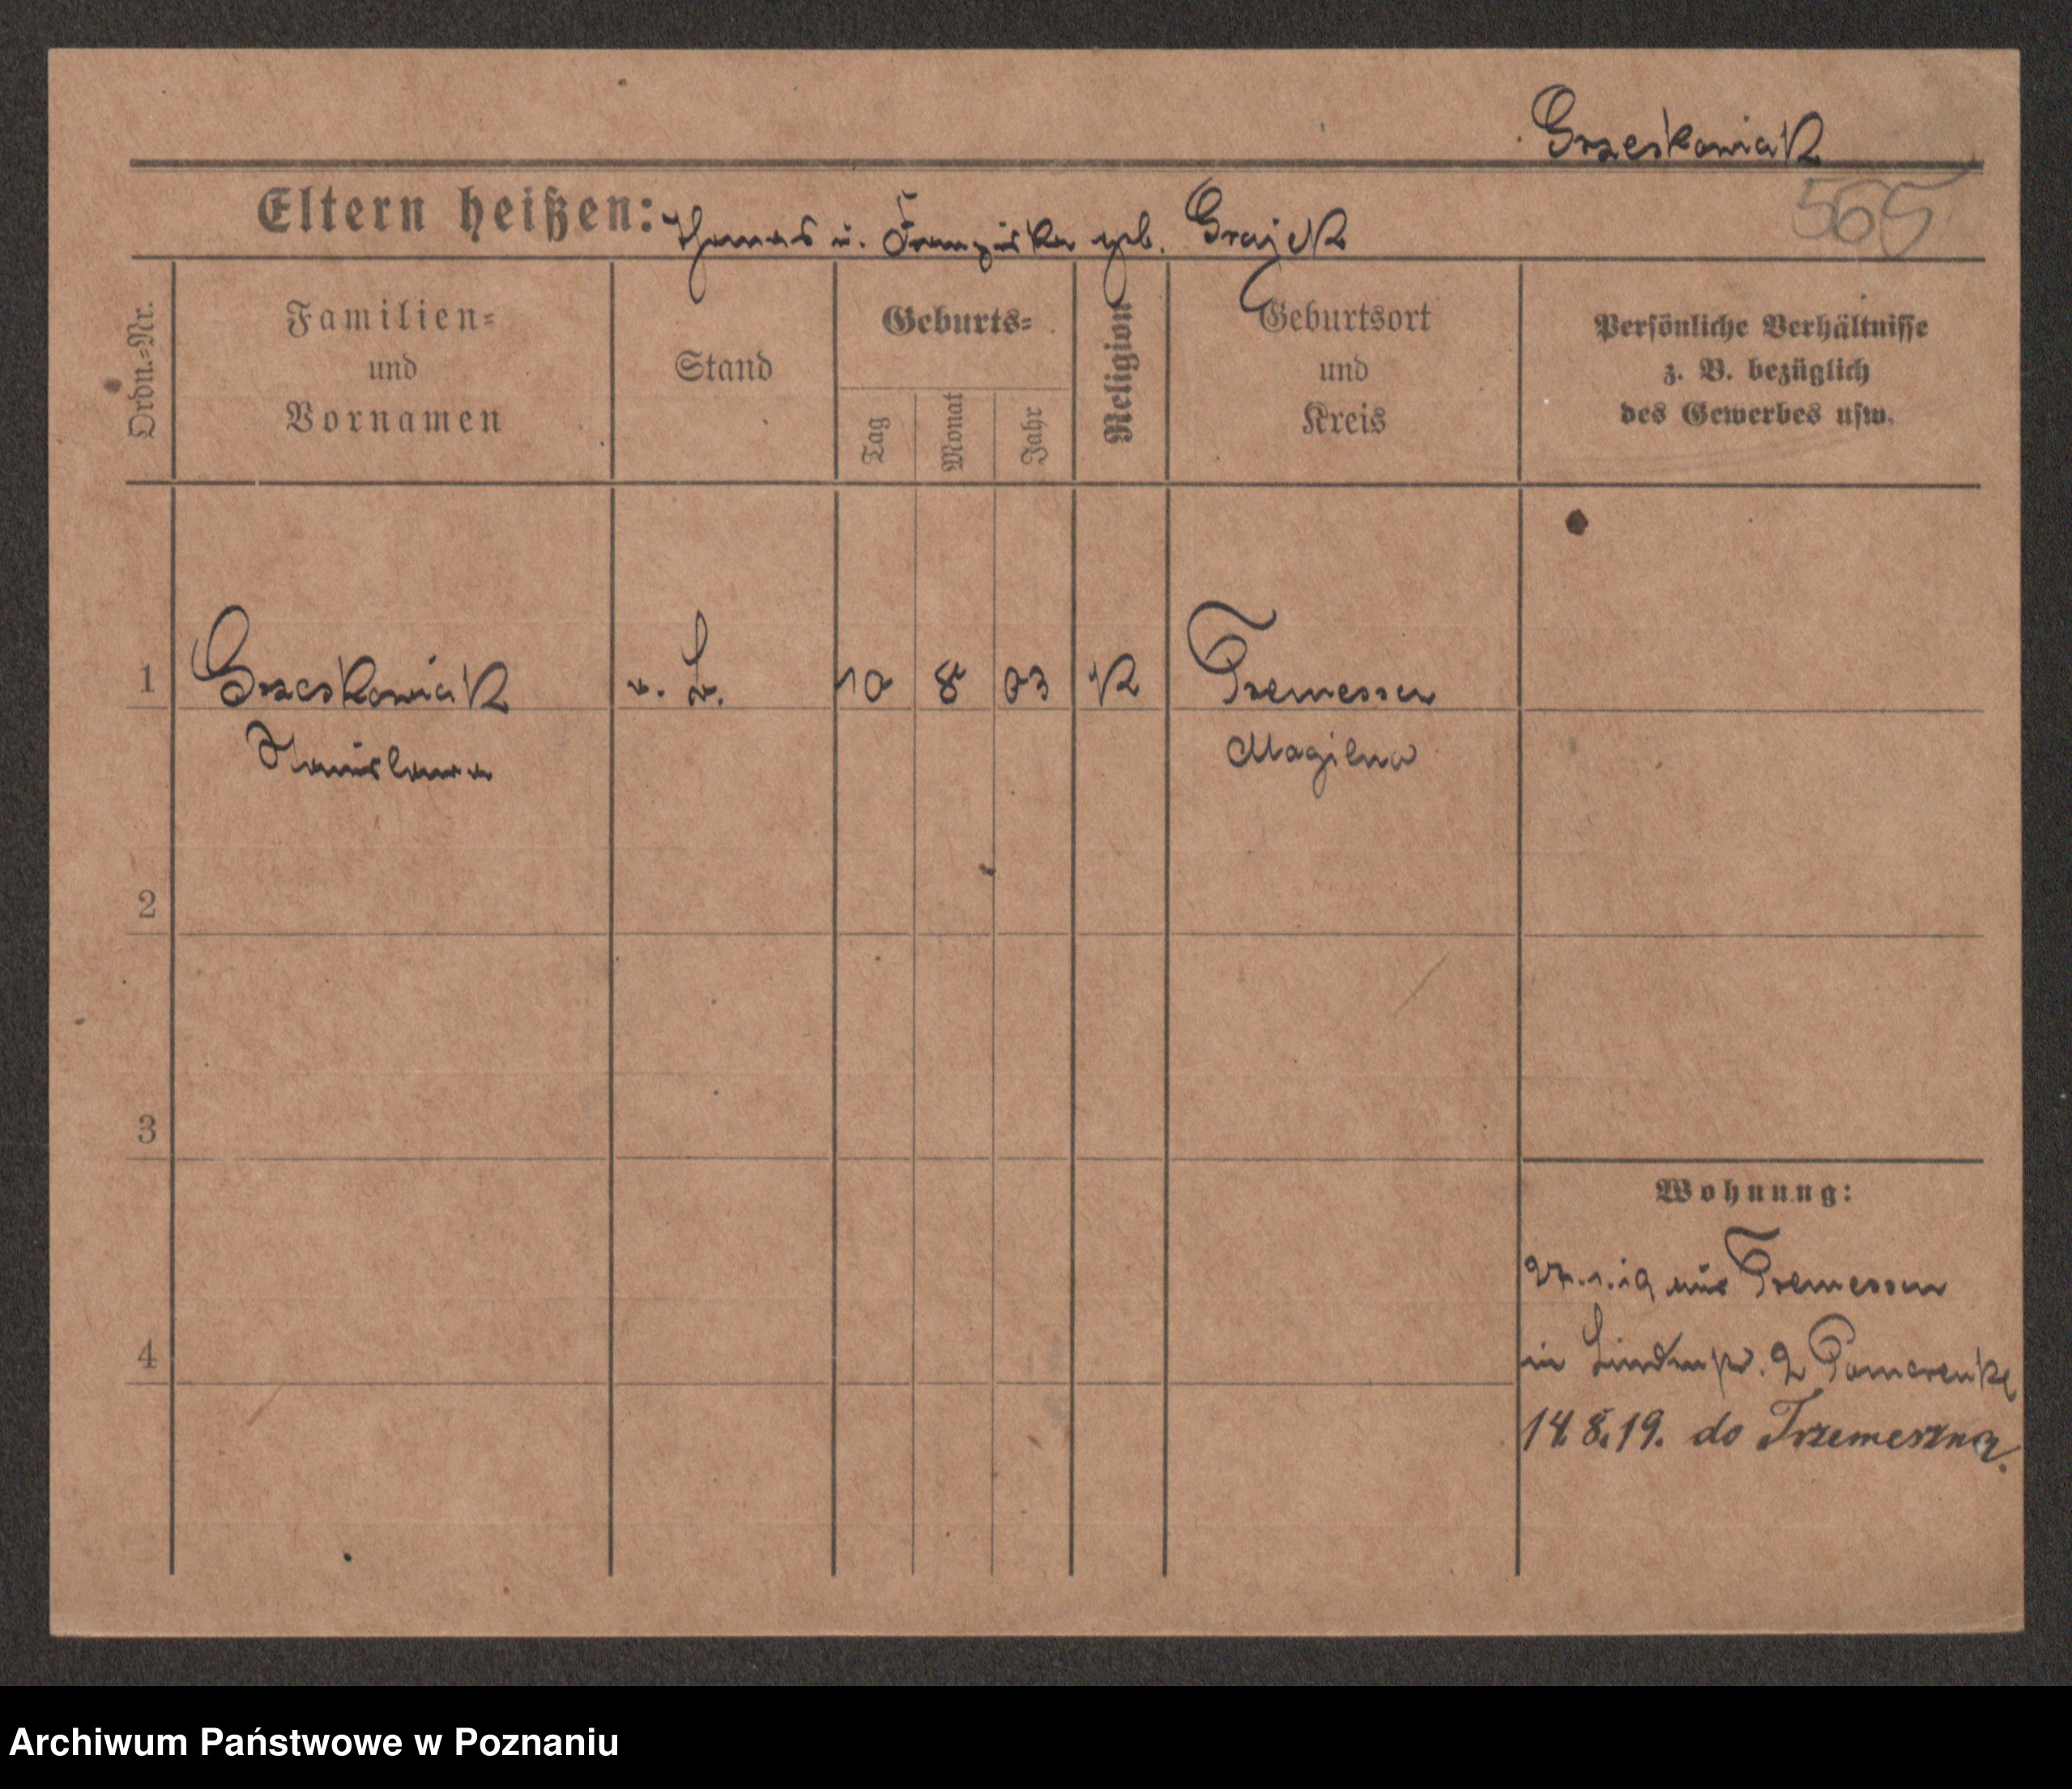 Grzeskowiak
565
Eltern heißen: Thomas u. Franziska geb. Grajek
Ordn.-Nr.
Familien-
und
Vornamen
Stand
Geburts-
Tag
Monat
Jahr
Religion
Geburtsort
und
Kreis
Persönliche Verhältnisse
z. B. bezüglich
des Gewerbes usw.
1 Grzeskowiak 10 8 03 K Tremessen
Stanislawa Mogilno
2
3
4
Wohnung:
27.1.19 aus Tremessen
in 2 Pomerenke
14.8.19. do Trzemeszna.
Archiwum Państwowe w Poznaniu